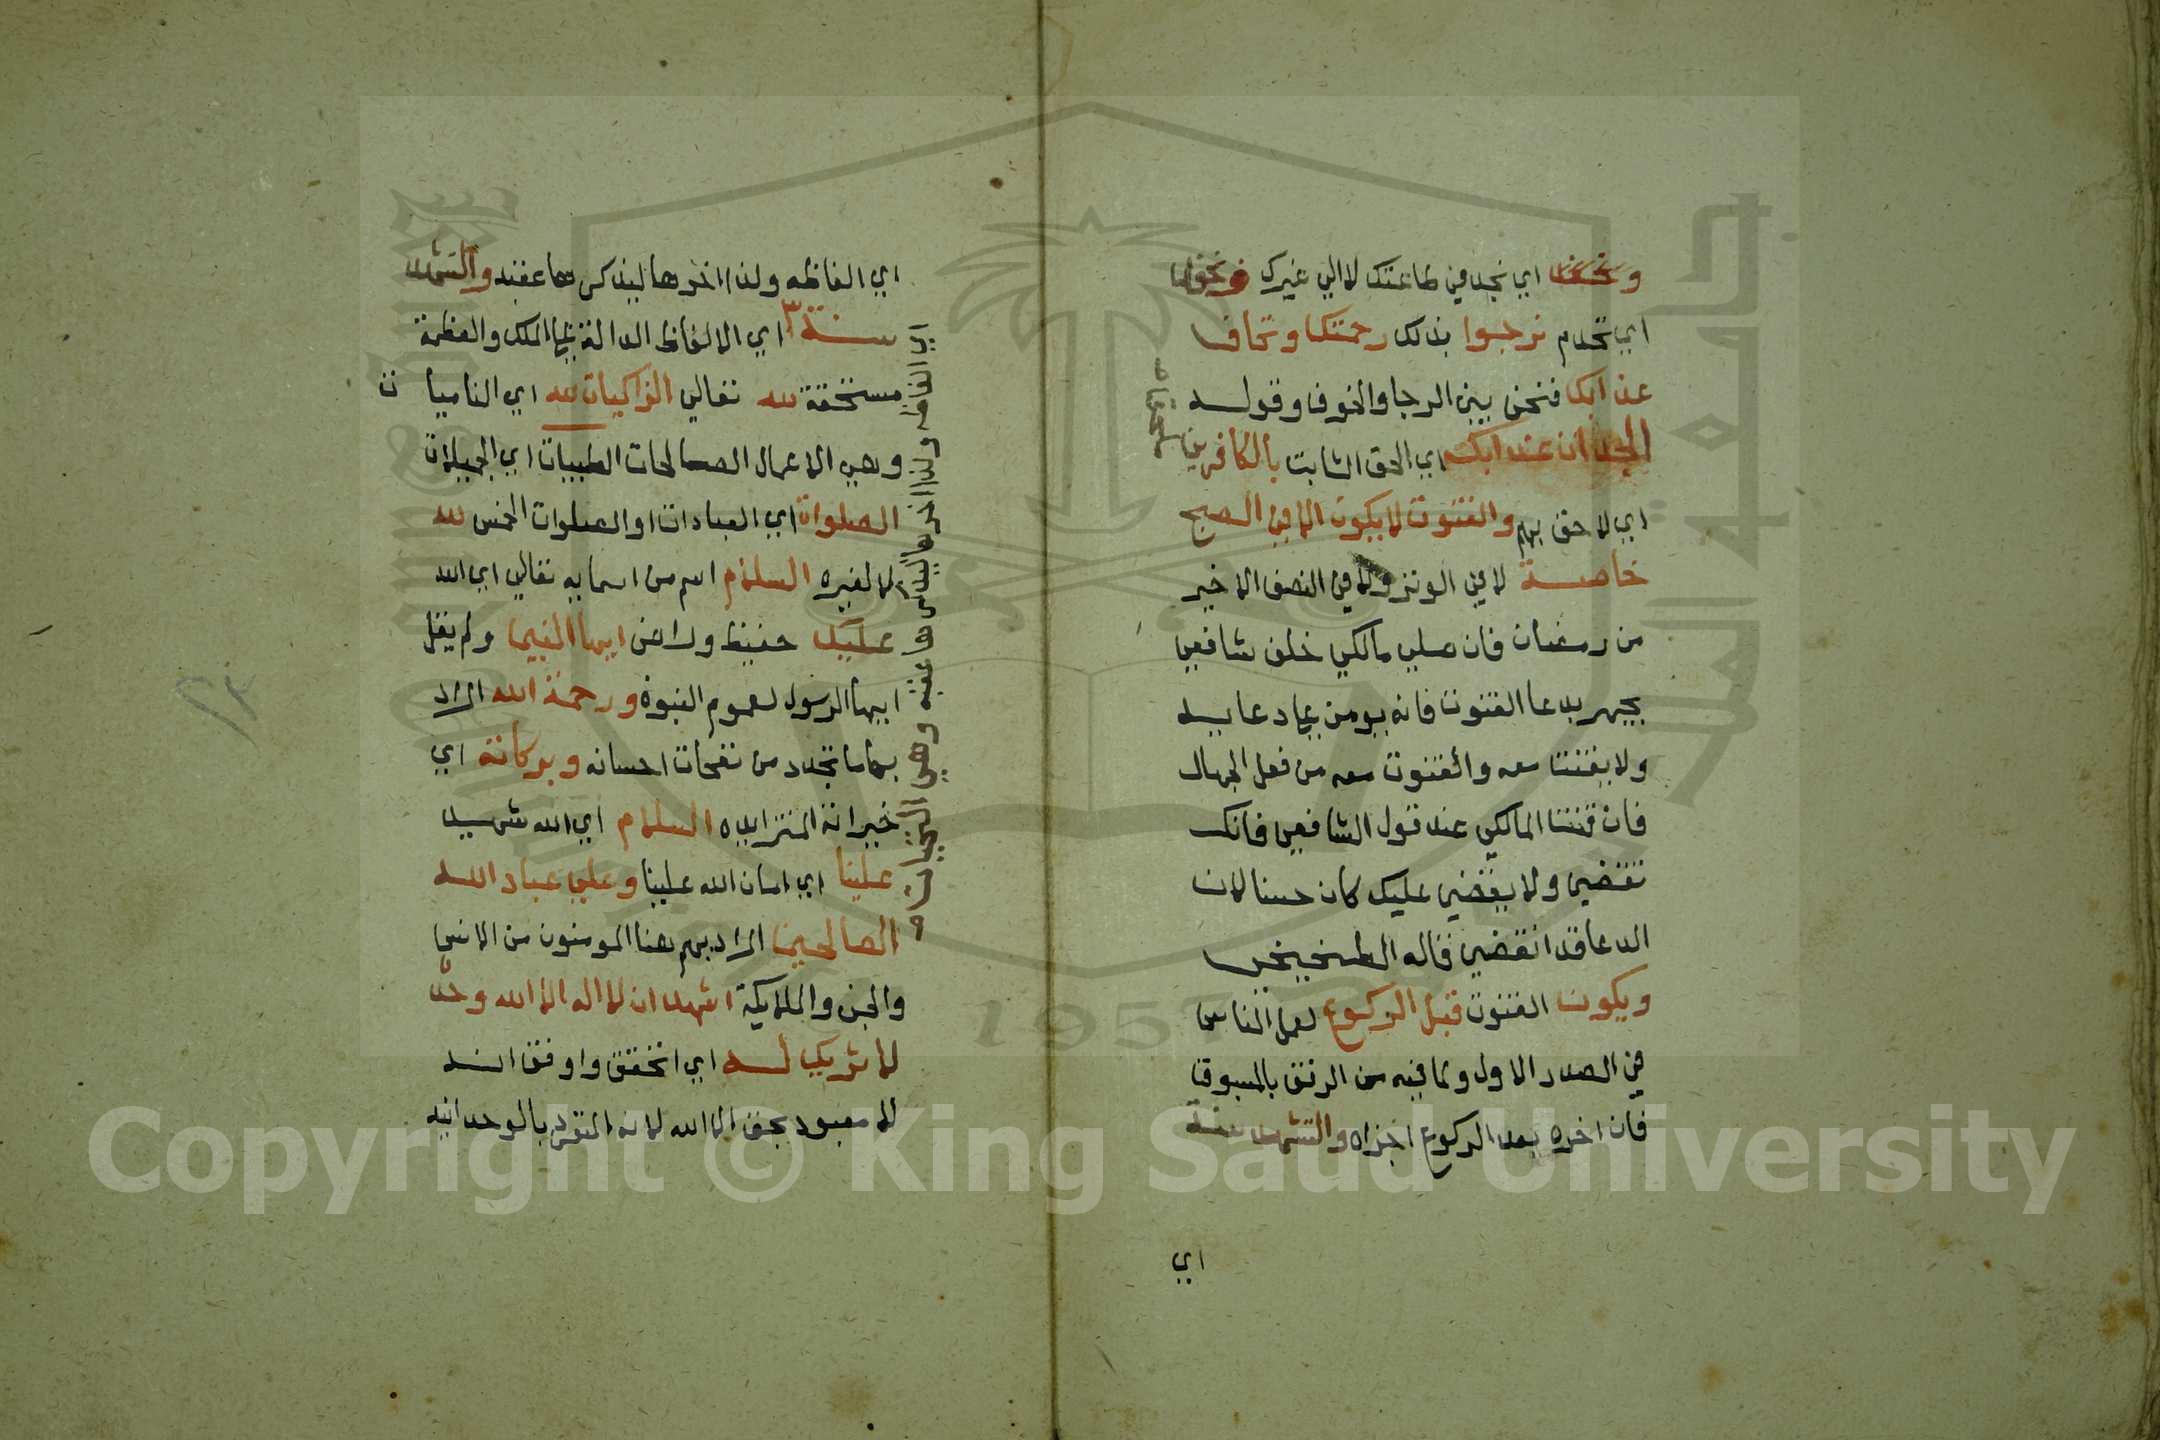 ونحفد اي نجد في طاعتك لا الي غيرك ونحفد
اي نخدم نرجوا بذلك رحمتك ونخاف
عذابك فنحن بين الرجا والخوف وقوله
الجد ان عذابك اي الحق الثابت بالكافرين
ملحق
اي لا حق بهم والقنوت لا يكون الا في الصبح
خاصة لا في الوتر ولا في النصف الاخير
من رمضان فان صلي مالكي خلف شافعي
يجهر بدعا القنوت فانه يومن علي دعايه
ولا يقنت معه والقنوت معه من فعل الجهال
فان قنت المالكي عند قول الشافعي فانك
تقضي ولا يقضي عليك كان حسنا لان
الدعا قد انقضي قاله الطخيخي
ويكون القنوت قبل الركوع لعمل الناس
في الصدر الاول ولما فيه من الرفق بالمسبوق
فان اخره بعد الركوع اجزاه والتشهد سنة
اي
اي الفاظه ولذا اخرها ليذكرها عقبه والتشهد
سنة اي الالفاظ الدالة علي الملك والعظمة
مستحقة لله تعالي الزاكيات لله اي الناميات
وهي الاعمال الصالحات الطيبات اي الجميلات
الصلوات اي العبادات او الصلوات الخمس لله
لا لغيره السلام اسم من اسمايه تعالي اي الله
عليك حفيظ وراض ايها النبي ولم يقل
ايها الرسول لعموم النبوة ورحمة الله المراد
بها ما تجدد من نفحات احسانه وبركاته اي
خيراته المتزايده السلام اي الله شهيد
علينا اي امان الله علينا وعلي عباد الله
الصالحين المراد بهم هنا المومنون من الانس
والجن والملايكة اشهد ان لا اله الا الله وحده
لا شريك له اي اتحقق واوفق انه
لا معبود بحق الا الله لانه المتفرد بالوحدانيه
اي الفاظه ولذا اخرها ليذكرها عقبه وهي التحيات
٢٣
Copyright © King Saud University
1957